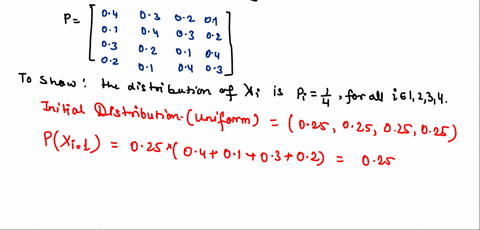 P= [ 0.4 0.3 0.2 0.1
0.1 0.4 0.3 0.2
0.3 0.2 0.1 0.4
0.2 0.1 0.4 0.3 ]
To Show: the distribution of Xi is Pi = 1/4, for all i∈1,2,3,4.
Initial Distribution (Uniform) = (0.25, 0.25, 0.25, 0.25)
P(Xi=1) = 0.25*(0.4+0.1+0.3+0.2) = 0.25